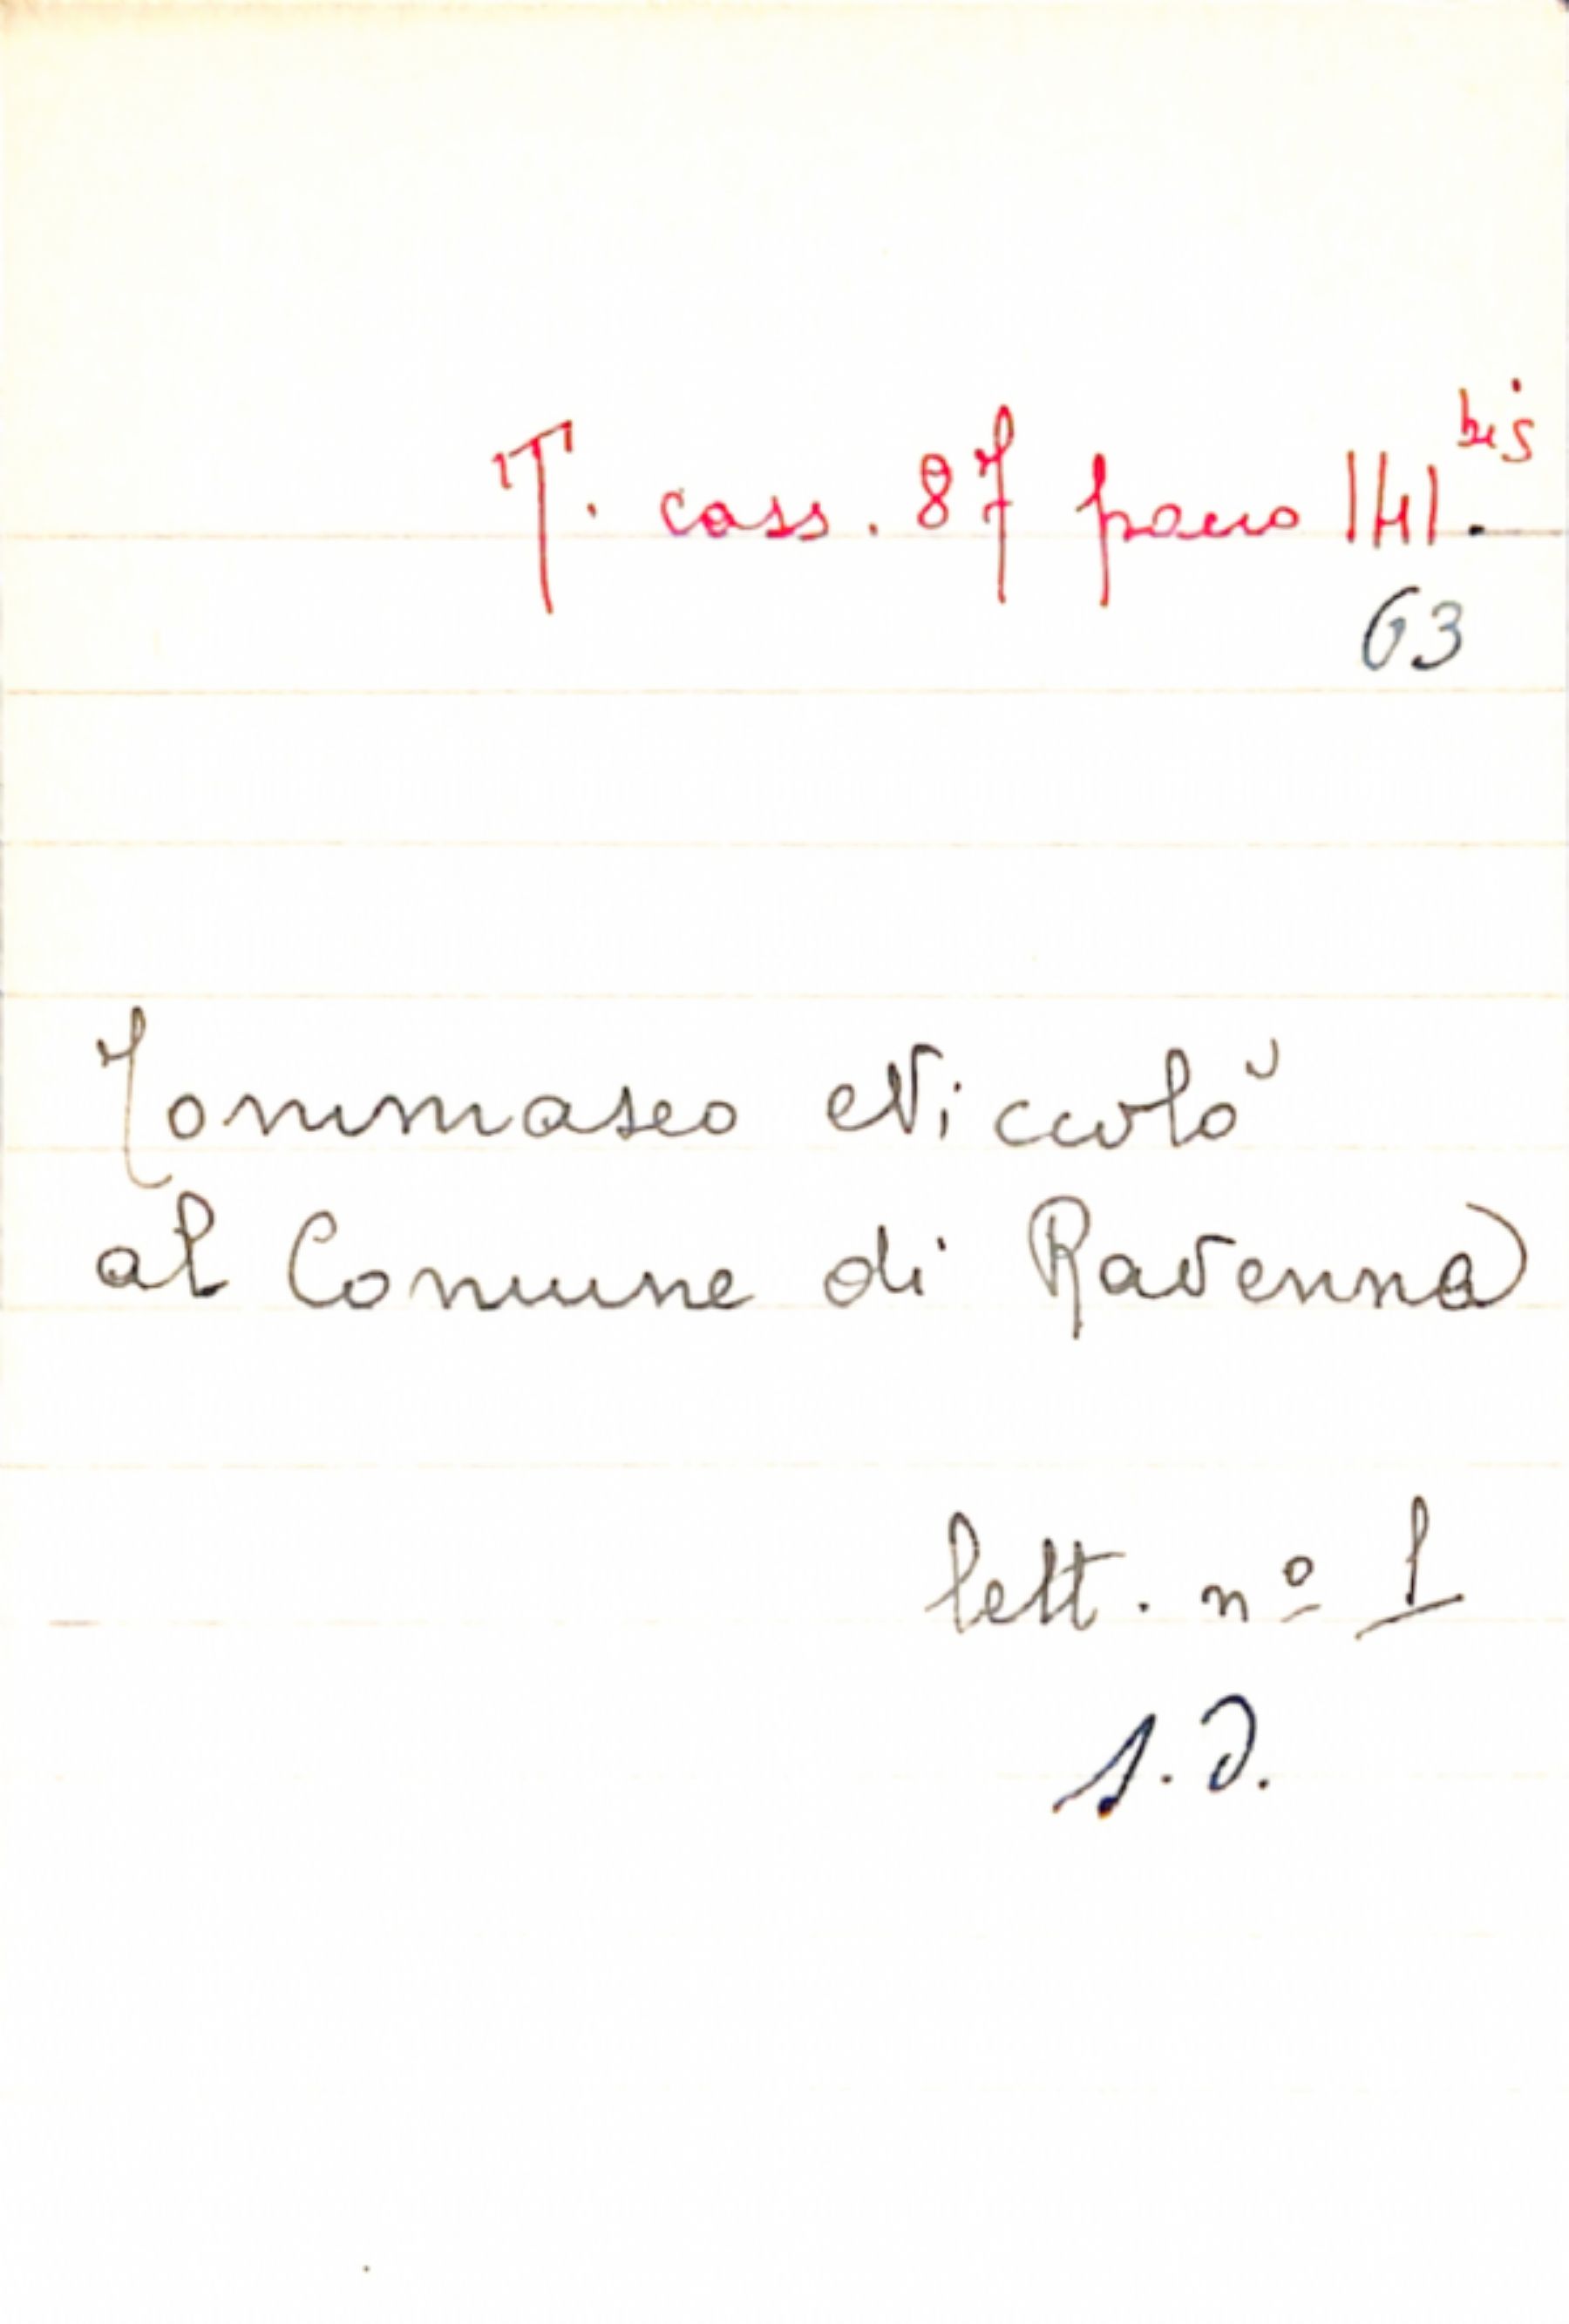 T. cass. 87 pacco 141 bis.
63
Tommaseo Niccolò
al Comune di Ravenna
lett. nº 1
s.d.